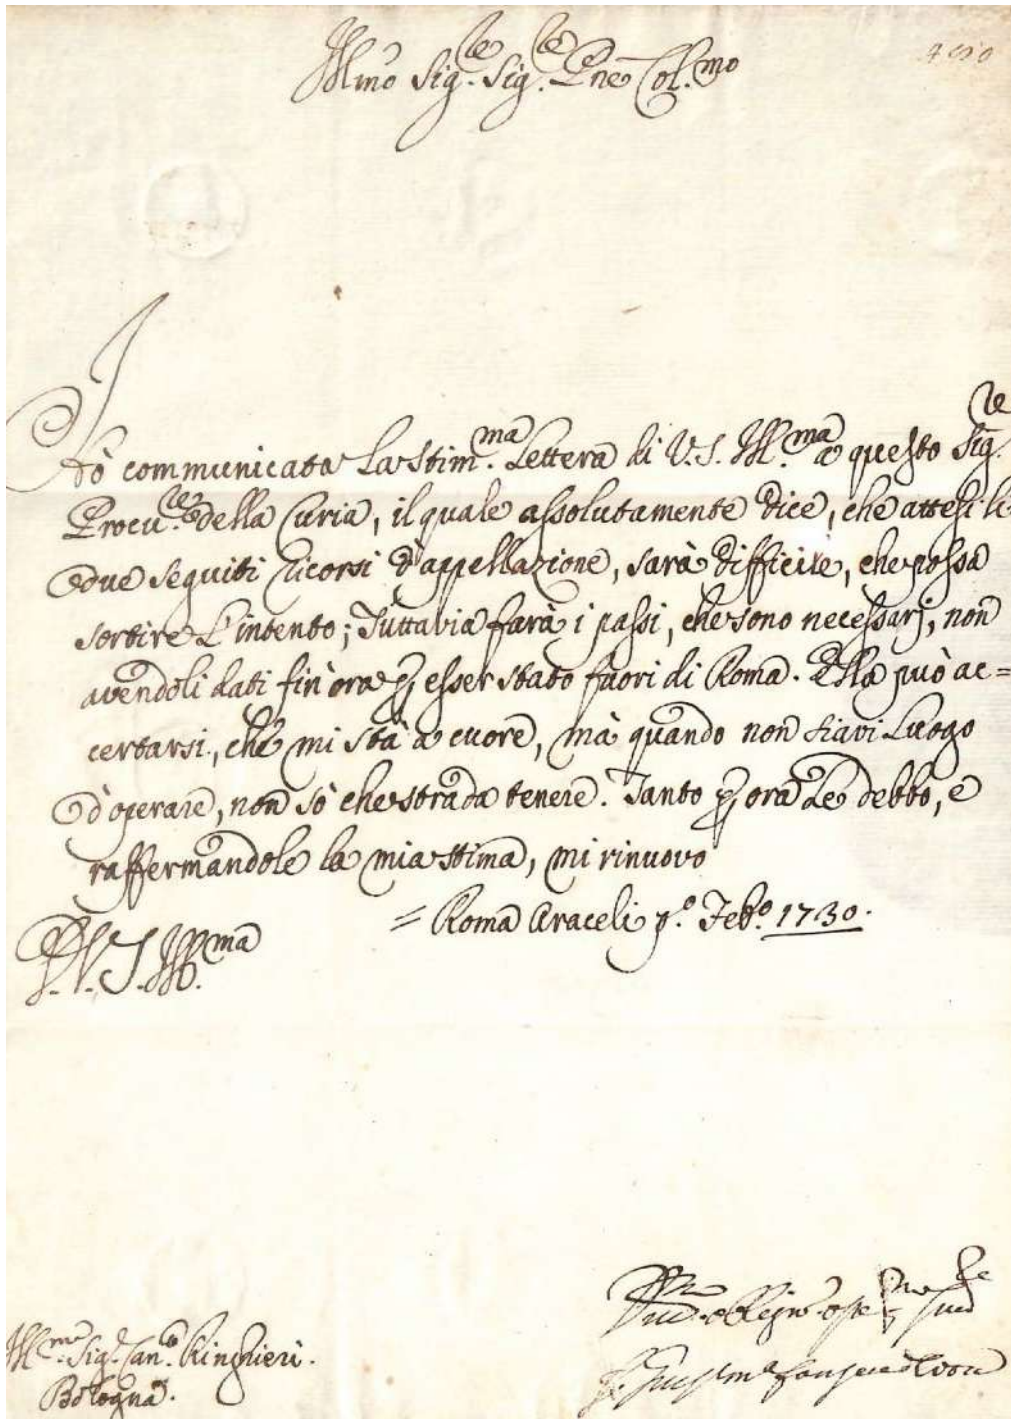 Illmo Sig.re Sig.re Pne Col.mo
Hò communicata la stim.ma Lettera di V. S. Ill.ma a questo Sig.re
Procu.re della Curia, il quale assolutamente dice, che attesi li
due seguiti ricorsi d'appellazione, sarà difficile, che possa
sortire l'intento; Tuttavia farà i passi, che sono necessarj, non
avendoli dati fin'ora p esser stato fuori di Roma. Ella può ac=
certarsi, che mi stà a cuore, mà quando non siavi Luogo
d'operare, non sò che strada tenere. Tanto p ora Le debbo, e
raffermandole la mia stima, mi rinuovo
= Roma Araceli p.o Feb.o 1730.
D. V. S. Ill.ma
Ill.mo Sig.r Can.co Ringhieri.
Bologna.